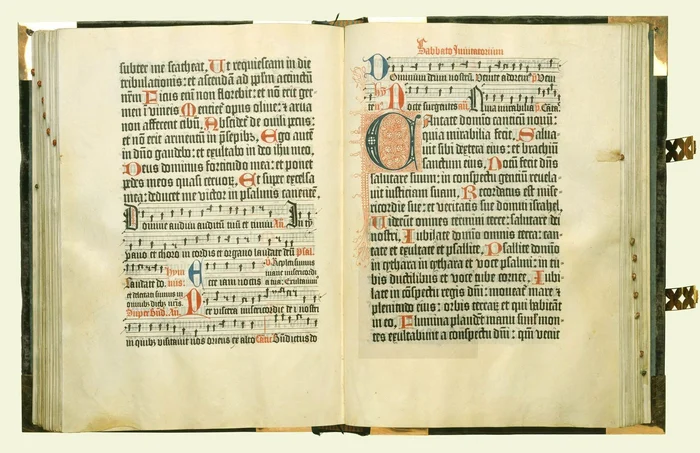 subter me scateat. Ut requiescam in die
tribulationis: et ascendā ad pp̄lm accinctū
nr̄m Ficus eni non florebit: et nō erit ger-
men ī vineis Mentiet᷒ opus oliue: ⁊ arua
non afferent cibū. Abscidet᷒ de ouili pecus:
et nō erit armentū in p̄sepibꝫ. Ego aut̄
in dn̄o gaudebo: et exultabo in deo ih̄u meo.
Deus dominus fortitudo mea: et ponet
pedes meos quasi ceruoꝝ. Et super excelsa
mea: deducet me victor in psalmis canentē.
Domine audiui auditū tuū et timui An̄. In ty
pano et choro in cordis et organo laudate deū psal.
Laudate do. mis: hym
Ecce iam noctis
v̄ Repleti sumus
mane misericordia
a tua: Exultauimꝰ
et delectati sumus in
omnibꝫ diebꝫ nr̄is.
Super Bn̄d. An̄.
Per viscera misericordie dei nostri
in quibꝫ visitauit nos oriens ex alto Cātic̄ Bn̄dictus do
Sabbato Inuitatorium
Dominum deum nostrū. Venite adoremꝰ p̄ Veni
te. hȳ Nocte surgentes an̄. Quia mirabilia p̄s Cāta.
Cantate domino canticū nouū:
quia mirabilia fecit. Salua-
uit sibi dextera eius: et brachiū
sanctum eius. Notū fecit dn̄s
salutare suum: in conspectu gentiū reuela-
uit iusticiam suam. Recordatus est mise-
ricordie sue: et veritatis sue domui israhel.
Viderūt omnes termini terre: salutare dei
nostri. Iubilate domīo omnis terra: can-
tate et exultate et psallite. Psallite domīo
in cythara in cythara et voce psalmi: in tu-
bis ductilibus et voce tube cornee. Iubi-
late in cōspectu regis dn̄i: moueat᷒ mare ⁊
plenitudo eius: orbis terraꝝ et qui habitāt
in eo. Flumina plaudēt manu simł mon-
tes exultabunt a conspectu dn̄i: qm̄ venit